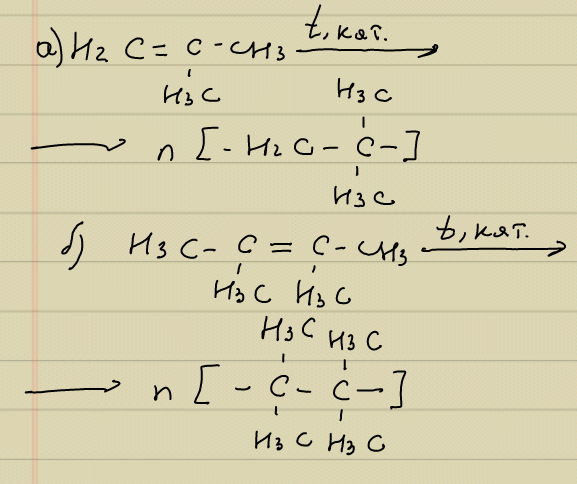 а) H2 C = C - CH3 t, кат.
H3 C
H3 C
n [- H2 C - C -]
H3 C
б) H3 C - C = C - CH3 t, кат.
H3 C H3 C
H3 C H3 C
n [ - C - C - ]
H3 C H3 C